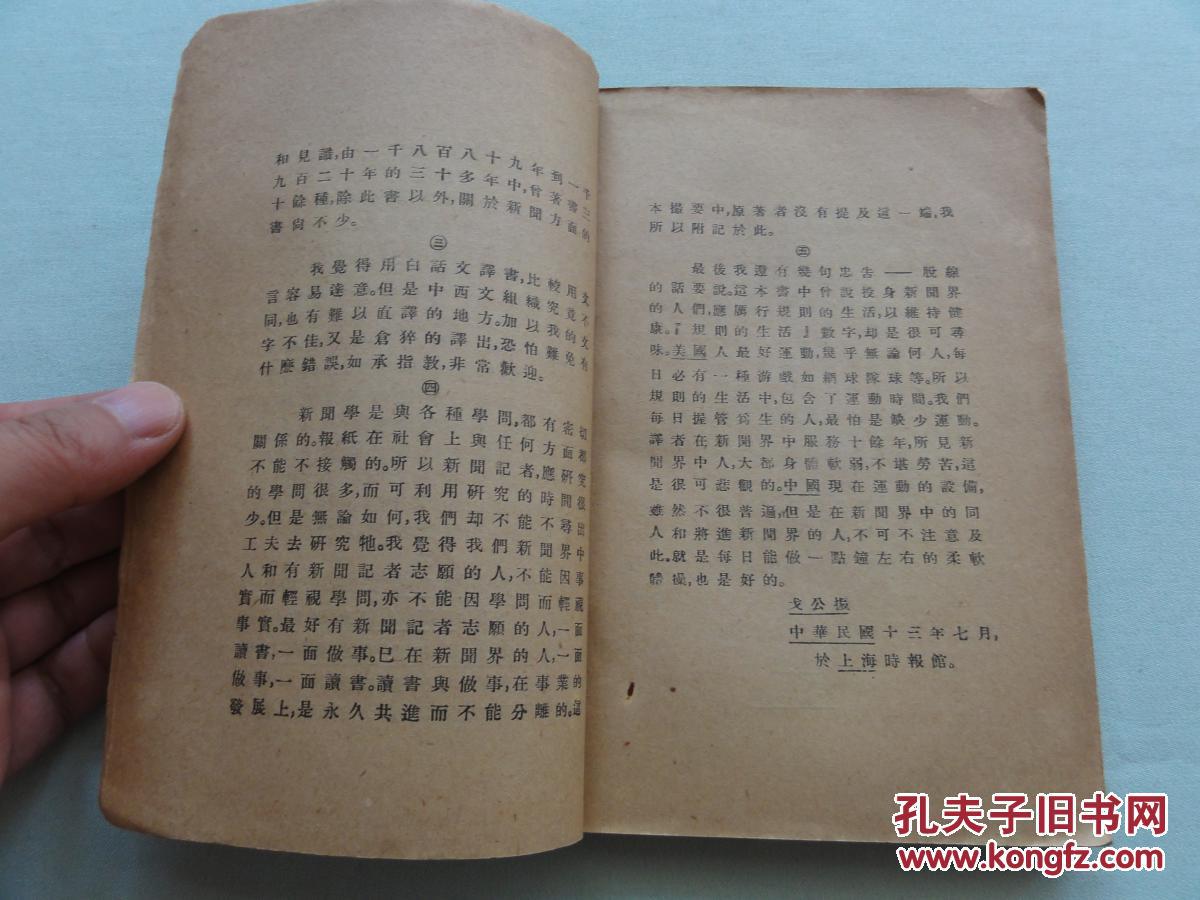 和見識,由一千八百八十九年到一千
九百二十年的三十多年中,曾著書三
十餘種,除此書以外,關於新聞方面的
書尙不少。
㊂
我覺得用白話文譯書,比較用文
言容易達意。但是中西文組織究竟不
同,也有難以直譯的地方。加以我的文
字不佳,又是倉猝的譯出,恐怕難免有
什麼錯誤,如承指教,非常歡迎。
㊃
新聞學是與各種學問,都有密切
關係的。報紙在社會上與任何方面都
不能不接觸的。所以新聞記者,應硏究
的學問很多,而可利用硏究的時間很
少。但是無論如何,我們却不能不尋出
工夫去硏究牠。我覺得我們新聞界中
人和有新聞記者志願的人,不能因事
實而輕視學問,亦不能因學問而輕視
事實。最好有新聞記者志願的人,一面
讀書,一面做事。已在新聞界的人,一面
做事,一面讀書。讀書與做事,在事業的
發展上,是永久共進而不能分離的。這
本撮要中,原著者沒有提及這一端,我
所以附記於此。
㊄
最後我還有幾句忠告——股線
的話要說。這本書中曾說投身新聞界
的人們,應厲行規則的生活,以維持健
康。『規則的生活』數字,却是很可尋
味。美國人最好運動,幾乎無論何人,每
日必有一種游戲如網球隊球等。所以
規則的生活中,包含了運動時間。我們
每日握管爲生的人,最怕是缺少運動。
譯者在新聞界中服務十餘年,所見新
聞界中人,大都身體軟弱,不堪勞苦,這
是很可悲觀的。中國現在運動的設備,
雖然不很普遍,但是在新聞界中的同
人和將進新聞界的人,不可不注意及
此。就是每日能做一點鐘左右的柔軟
體操,也是好的。
戈公振
中華民國十三年七月,
於上海時報館。
孔夫子旧书网
www.kongfz.com